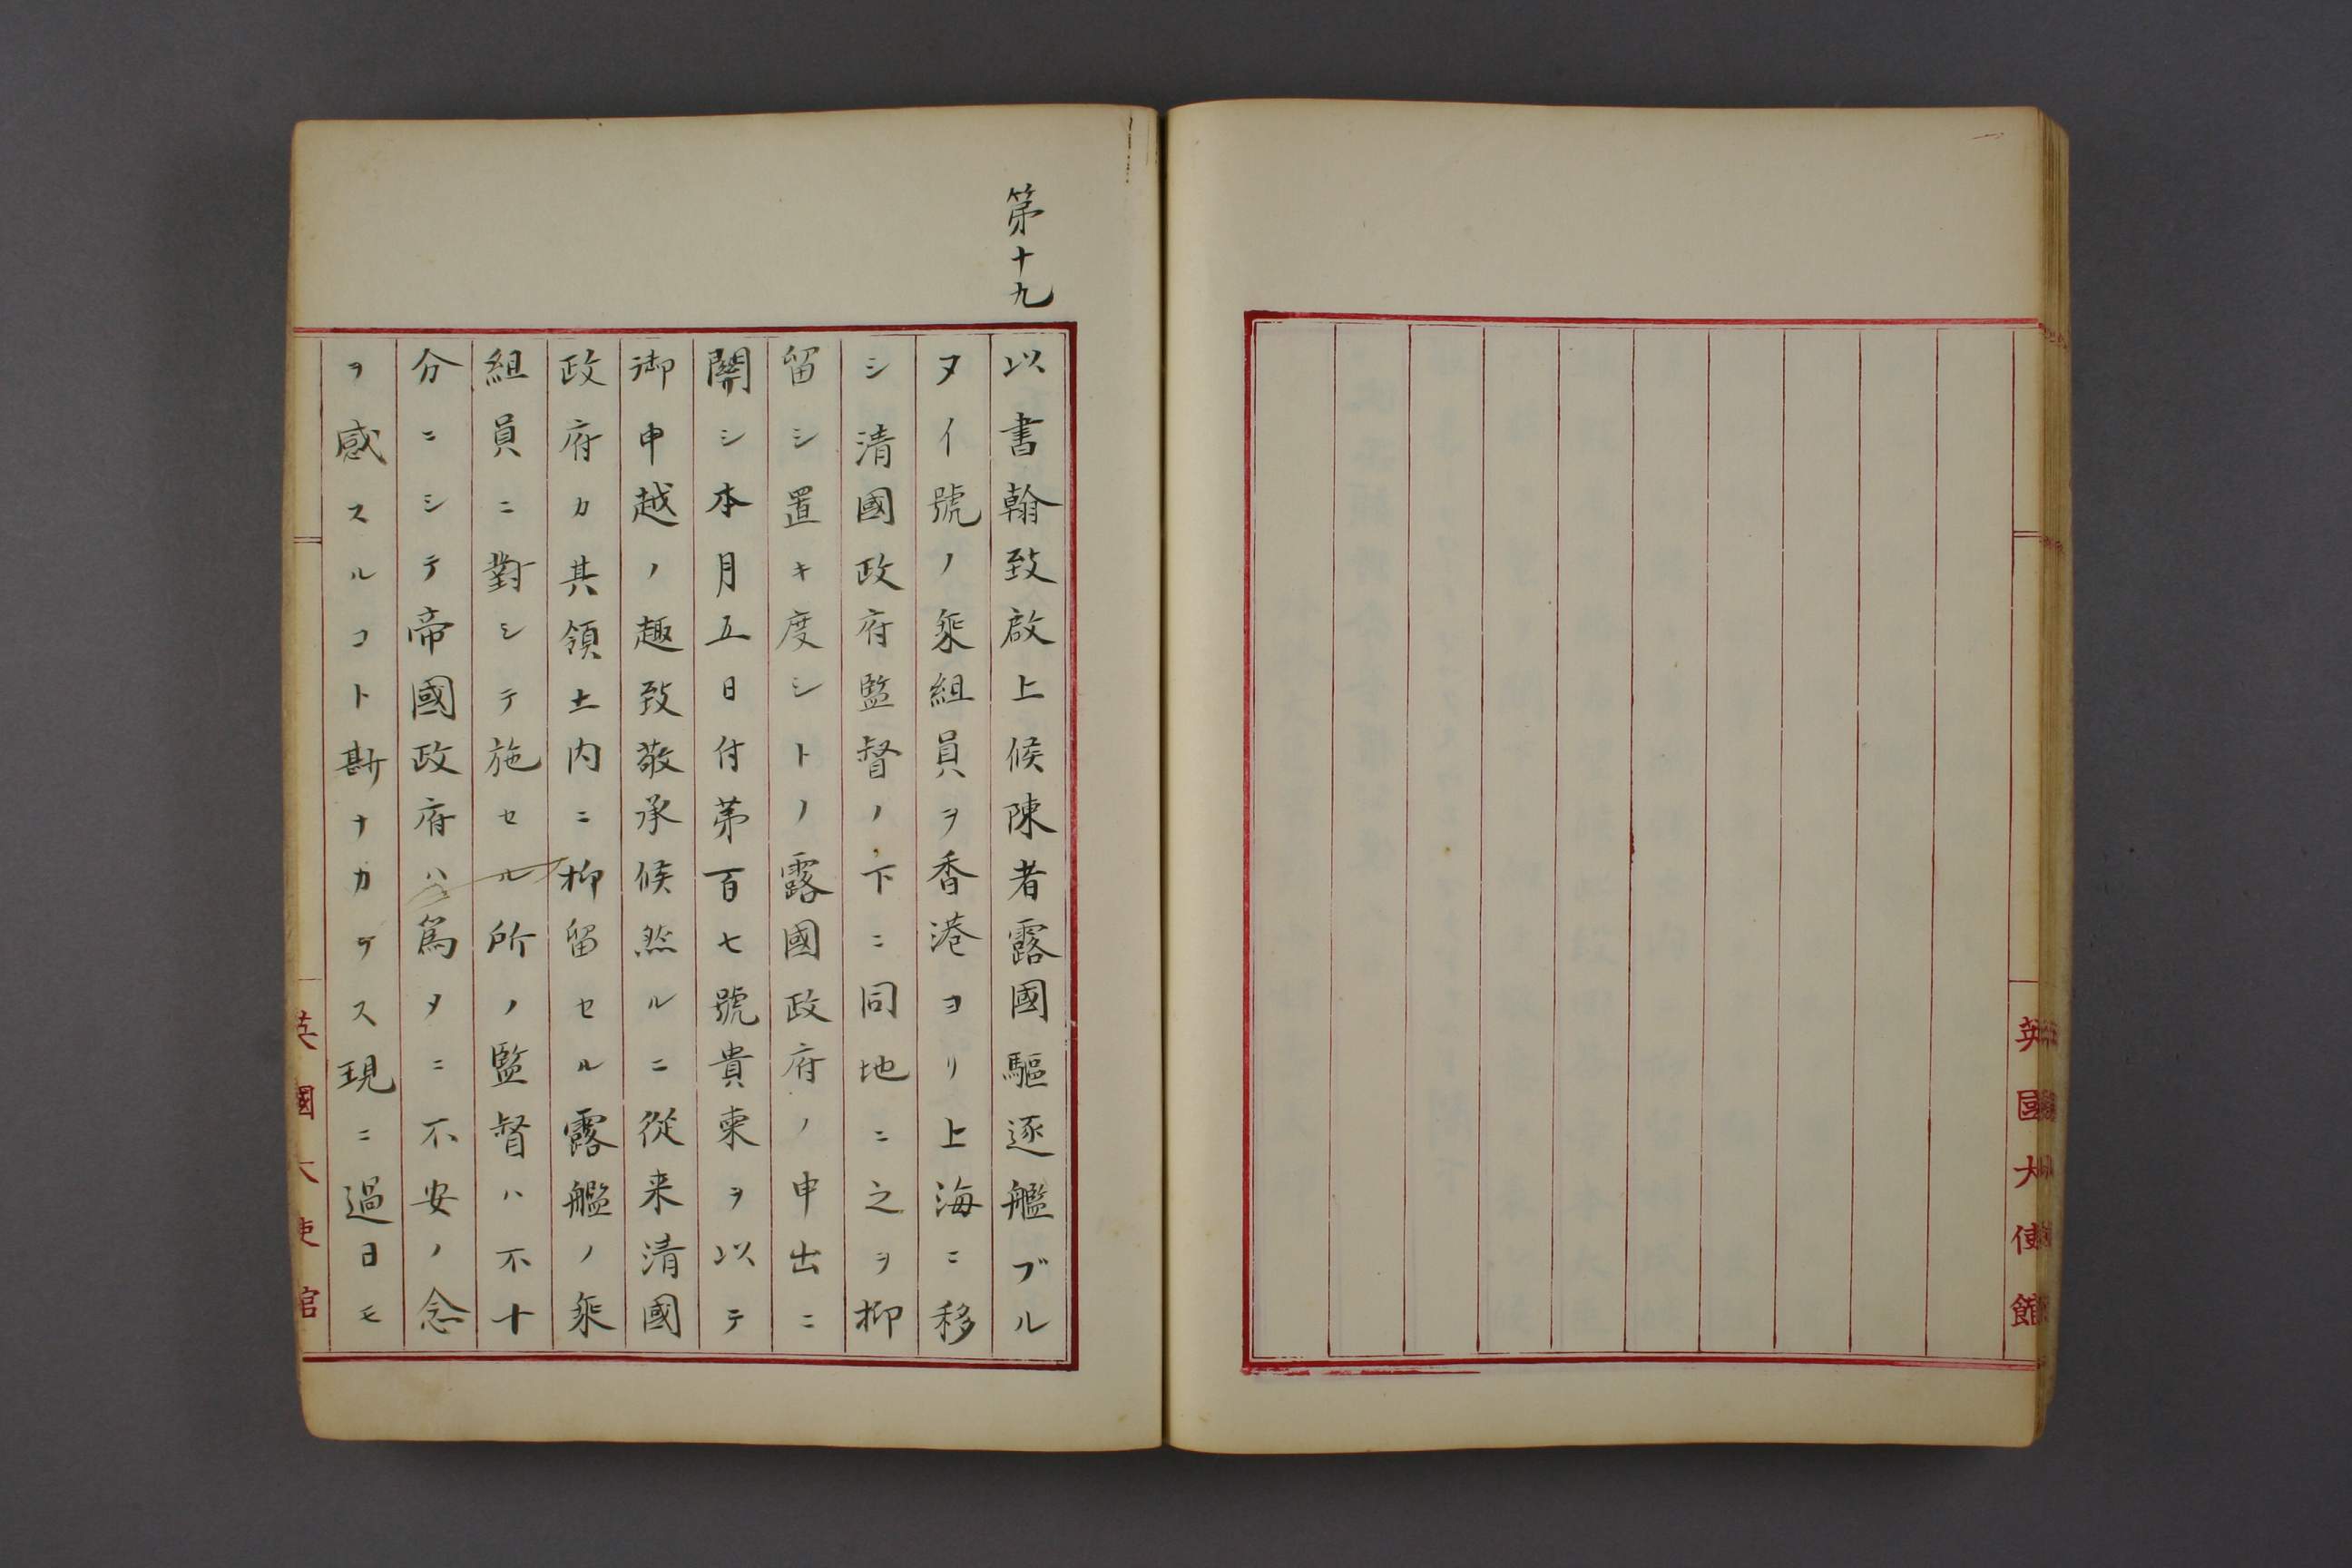 英國大使館
第十九
以書翰致啟上候陳者露國驅逐艦ブル
ヌイ號ノ乘組員ヲ香港ヨリ上海ニ移
シ清國政府監督ノ下ニ同地ニ之ヲ抑
留シ置キ度シトノ露國政府ノ申出ニ
關シ本月五日付第百七號貴柬ヲ以テ
御申越ノ趣致敬承候然ルニ從来清國
政府カ其領土内ニ抑留セル露艦ノ乘
組員ニ對シテ施セル所ノ監督ハ不十
分ニシテ帝國政府ハ為メニ不安ノ念
ヲ感スルコト尠ナカラス現ニ過日モ
英國大使館